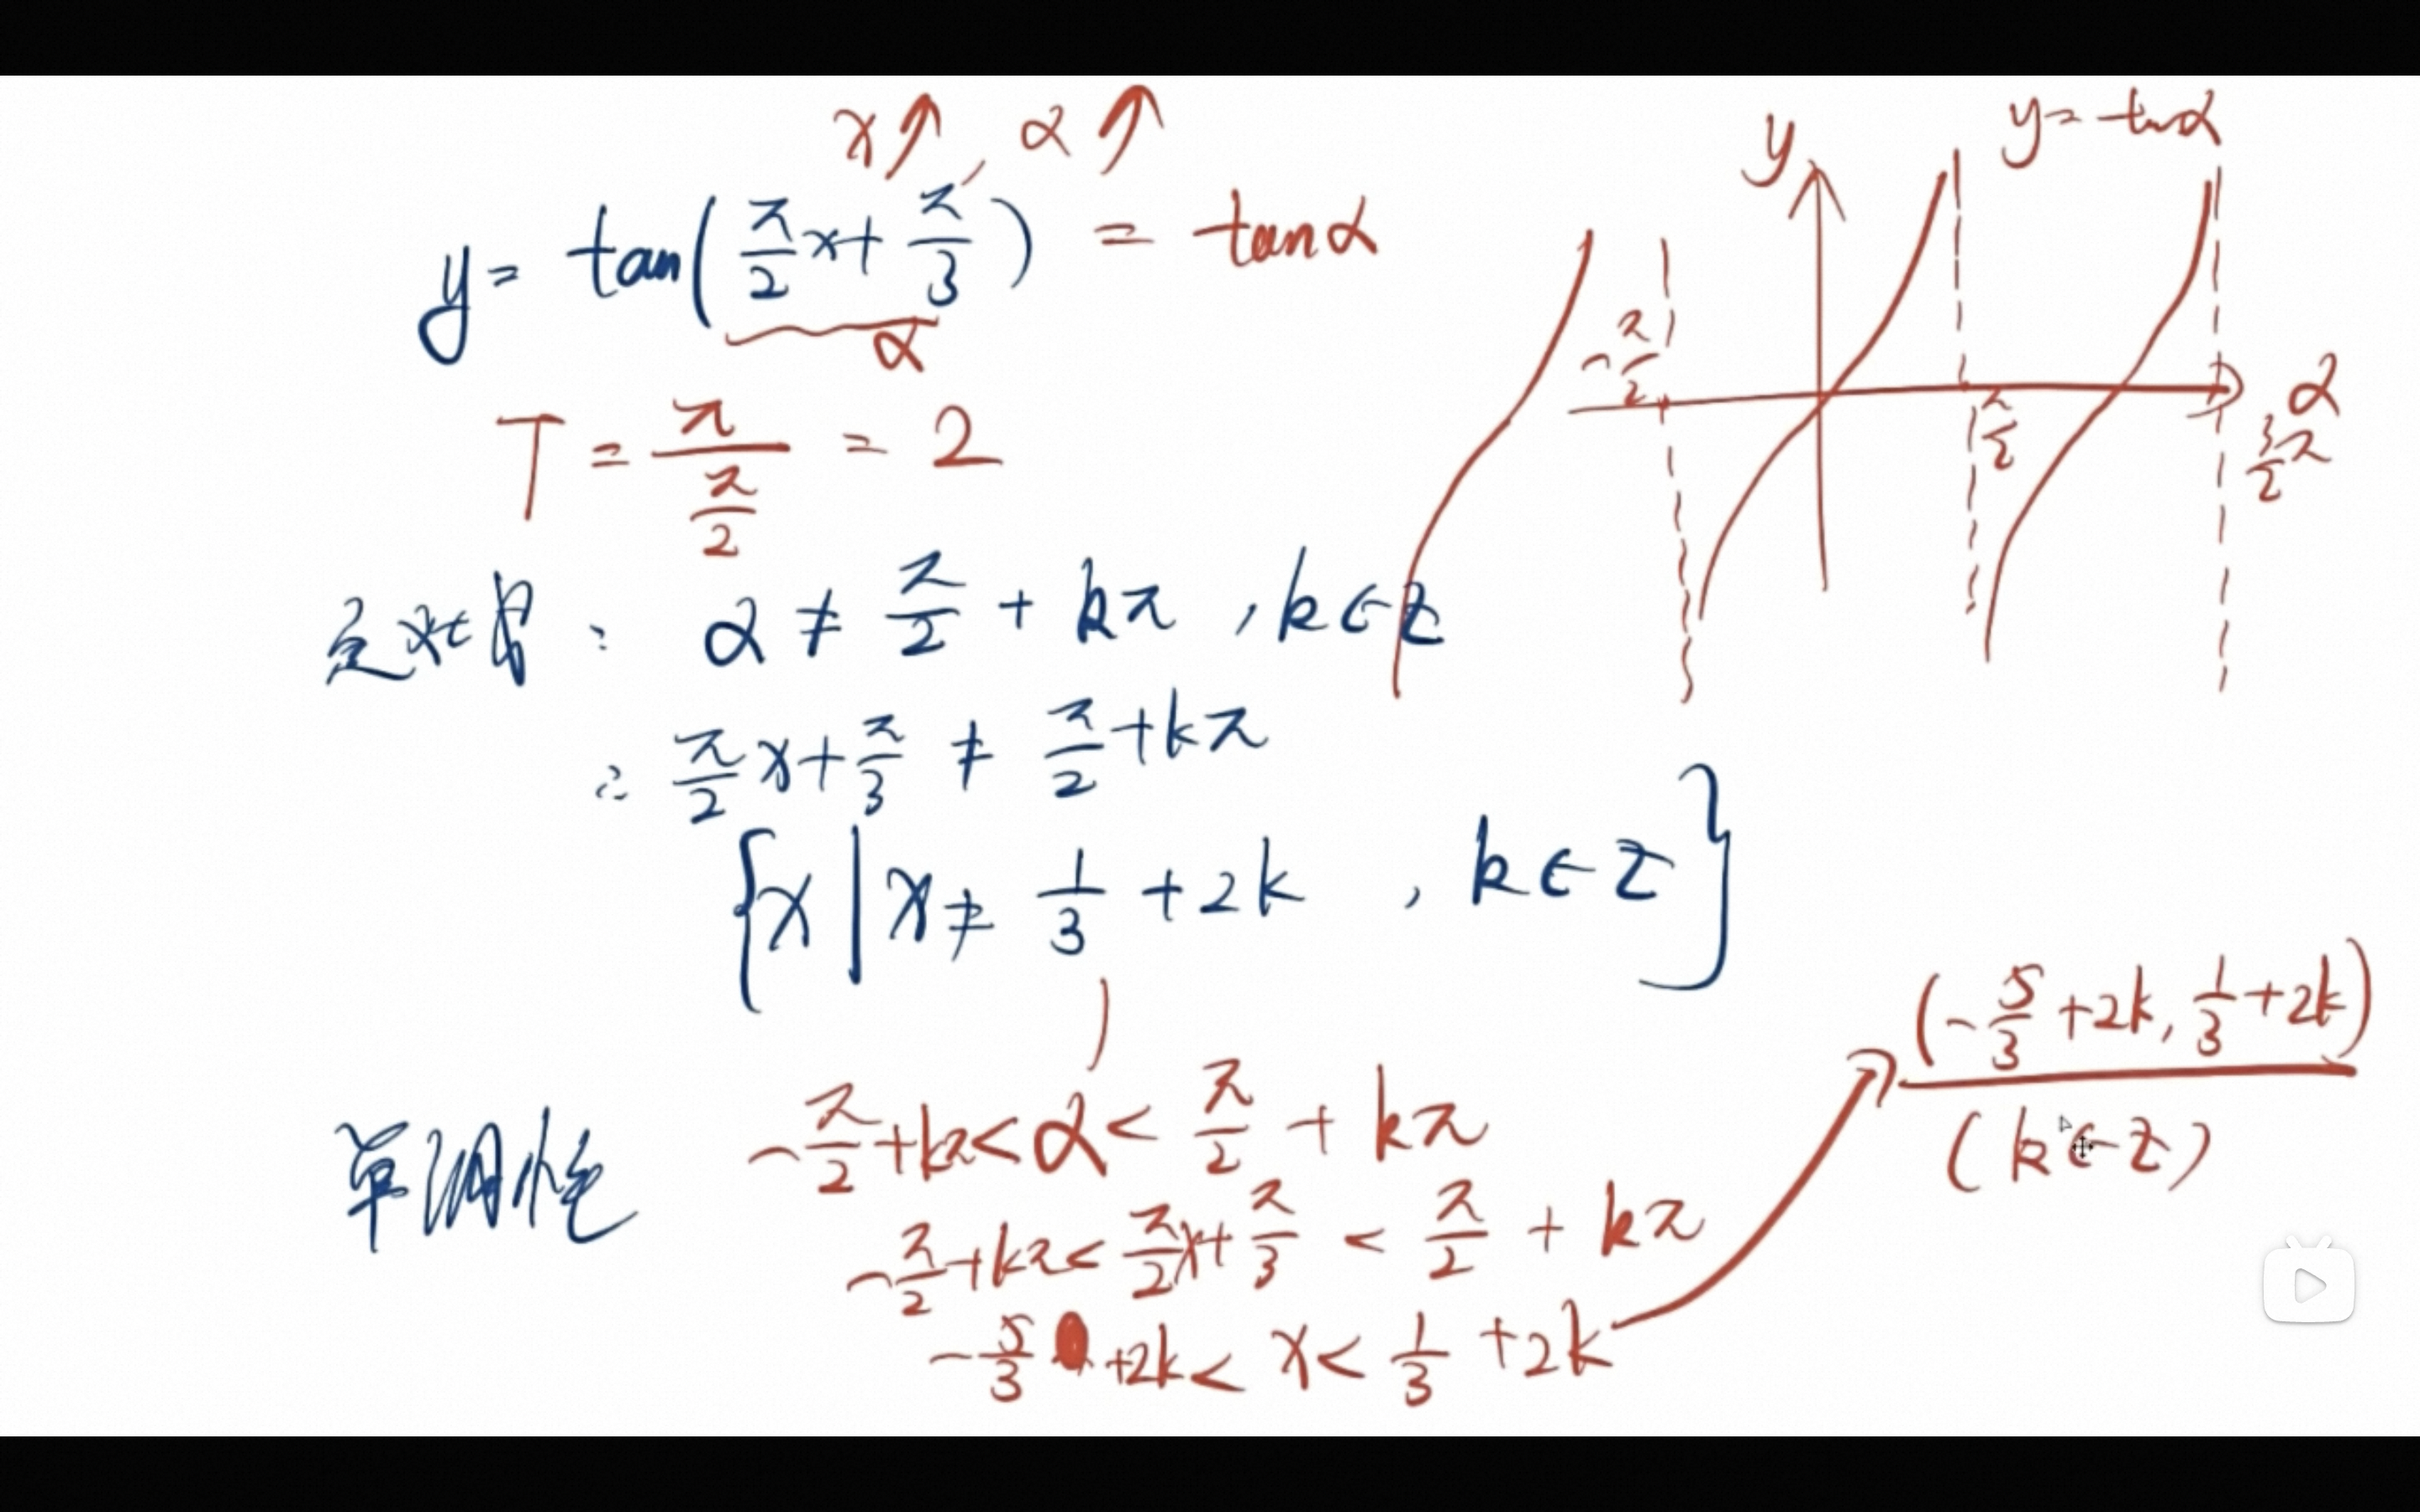 x↑, α↑
y = tan(π/2 x + π/3) = tanα
α
T = π/(π/2) = 2
定义域: α ≠ π/2 + kπ , k∈Z
∴ π/2 x + π/3 ≠ π/2 + kπ
{x | x ≠ 1/3 + 2k , k∈Z}
单调性 -π/2 + kπ < α < π/2 + kπ
-π/2 + kπ < π/2 x + π/3 < π/2 + kπ
-5/3 + 2k < x < 1/3 + 2k
(-5/3 + 2k, 1/3 + 2k)
(k∈Z)
y
y = tanα
-π/2
π/2
α
3/2 π